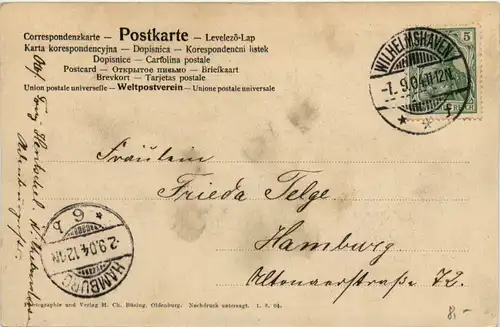 Correspondenzkarte – Postkarte – Levelező-Lap
Karta korespondencyjna – Dopisnica – Korespondenční listek
Dopisnice – Cartolina postale
Postcard – Открытое письмо – Briefkaart
Brevkort – Tarjetas postale
Union postale universelle – Weltpostverein – Unione postale universale
5
WILHELMSHAVEN
-1.9.04.11-12N.
* * f
Fräulein
Frieda Telge
Hamburg
Altonaerstraße 72.
* 6 b
2.9.04.12-1N
HAMBURG
Abs/ Hentschel
Photographie und Verlag H. Ch. Büsing, Oldenburg. Nachdruck untersagt. 1. 8. 04.
8.-